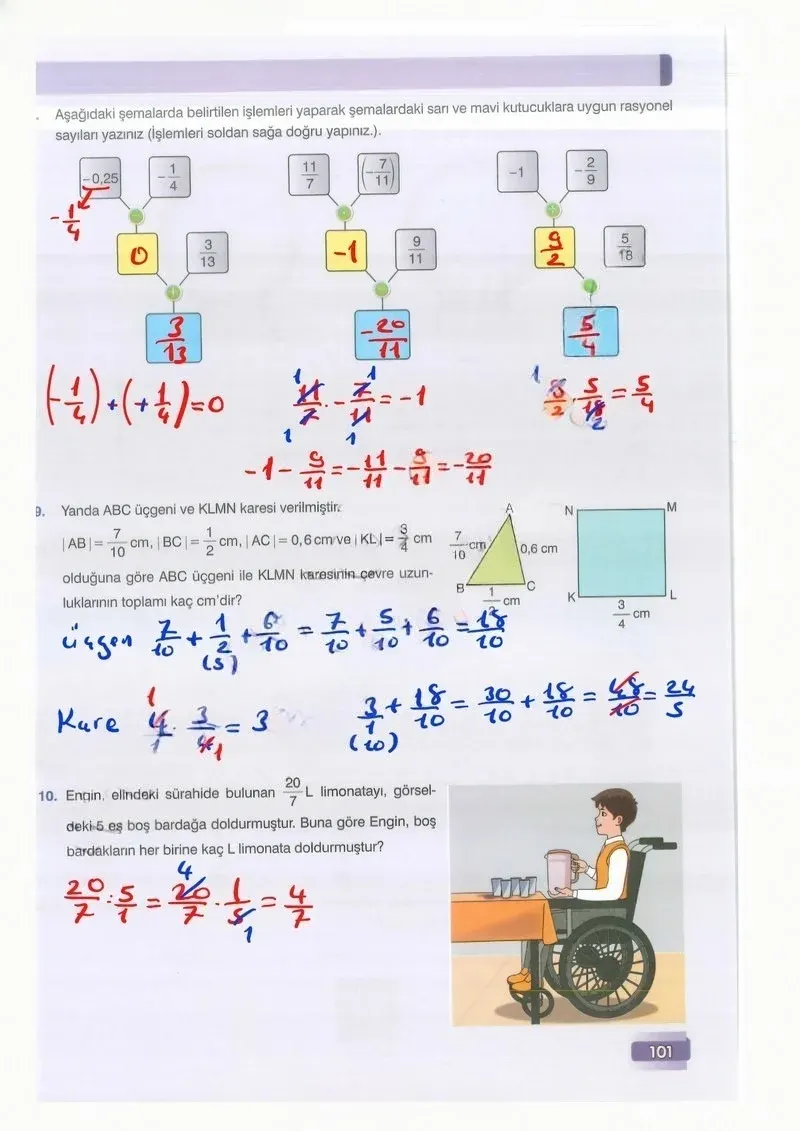 Aşağıdaki şemalarda belirtilen işlemleri yaparak şemalardaki sarı ve mavi kutucuklara uygun rasyonel
sayıları yazınız (İşlemleri soldan sağa doğru yapınız.).
-0,25 -1/4 11/7 (-7/11) -1 -2/9
-1/4
0 3/13 -1 9/11 9/2 5/18
3/13 -20/11 5/4
(-1/4)+(+1/4)=0 11/7 · -7/11 = -1 9/2 · 5/18 = 5/4
-1 - 9/11 = -11/11 - 9/11 = -20/11
9. Yanda ABC üçgeni ve KLMN karesi verilmiştir.
|AB| = 7/10 cm, |BC| = 1/2 cm, |AC| = 0,6 cm ve |KL| = 3/4 cm
olduğuna göre ABC üçgeni ile KLMN karesinin çevre uzun-
luklarının toplamı kaç cm'dir?
A N M
7/10 cm 0,6 cm
B C K L
1/2 cm 3/4 cm
üçgen 7/10 + 1/2 + 6/10 = 7/10 + 5/10 + 6/10 = 18/10
(5)
Kare 4/1 · 3/4 = 3 3/1 + 18/10 = 30/10 + 18/10 = 48/10 = 24/5
(10)
10. Engin, elindeki sürahide bulunan 20/7 L limonatayı, görsel-
deki 5 eş boş bardağa doldurmuştur. Buna göre Engin, boş
bardakların her birine kaç L limonata doldurmuştur?
20/7 : 5/1 = 20/7 · 1/5 = 4/7
101